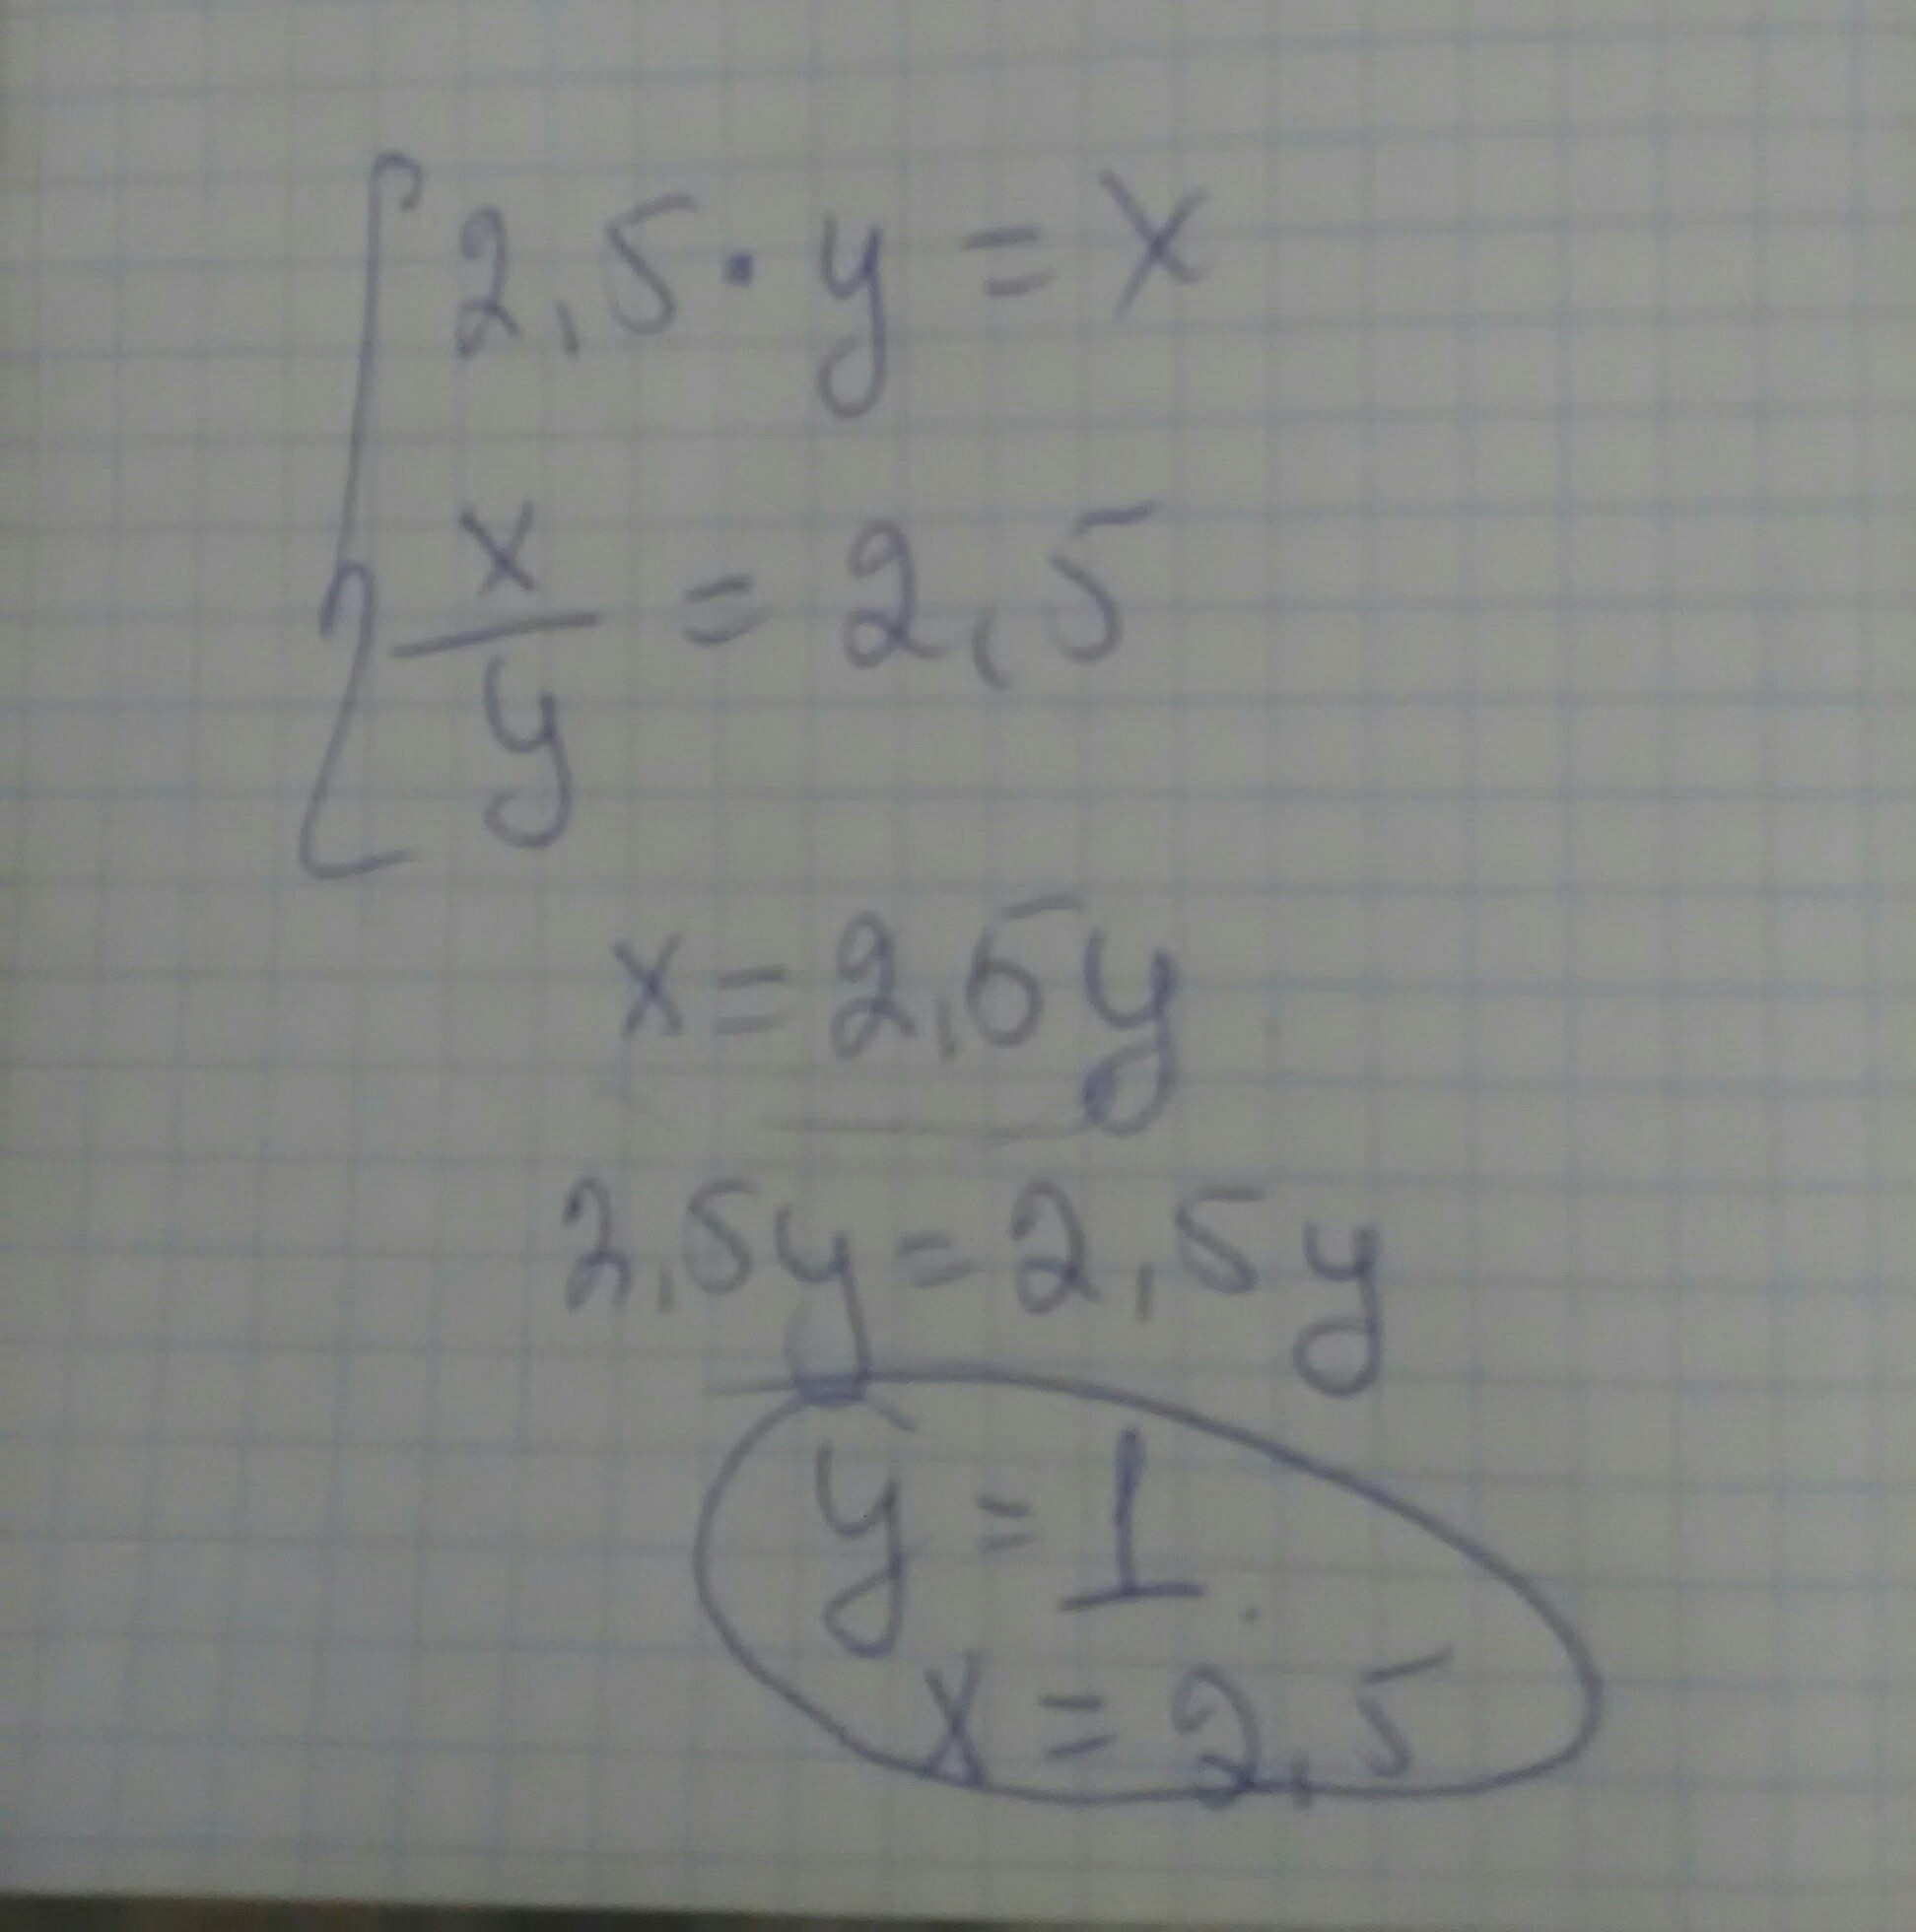 2,5 · y = x
x/y = 2,5
x = 2,5y
2,5y = 2,5y
y = 1
x = 2,5